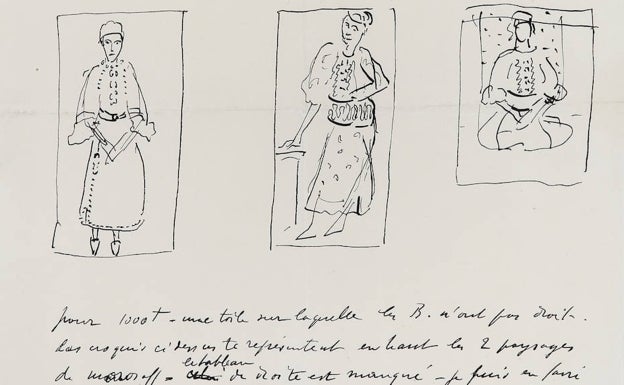 pour 1000 f - une toile sur laquelle les B. n'ont pas droit.
Les croquis ci dessus te représentent en haut les 2 paysages
le tableau
de Morosoff - de droite est manqué - je suis en train